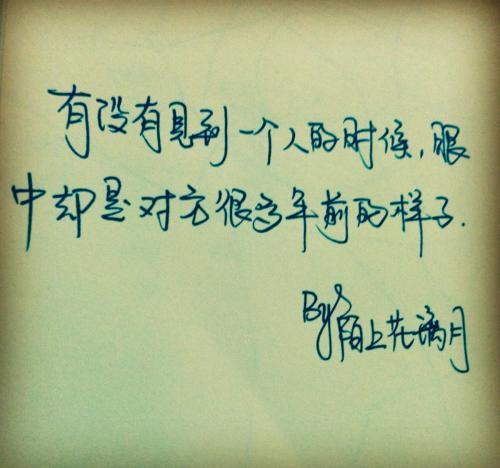 有没有见到一个人的时候,眼
中却是对方很多年前的样子.
By 陌上花漓月